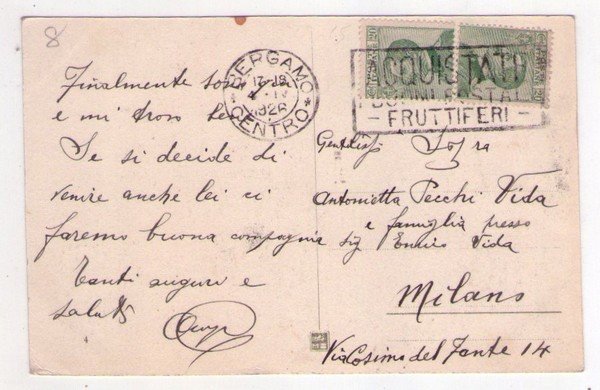 8
Finalmente son
e mi trovo be
Se si decide di
venire anche lei ci
faremo buona compagnia
Tanti auguri e
saluti
4
BERGAMO
17-18
IV
1926
CENTRO
ACQUISTATE
BUONI POSTALI
- FRUTTIFERI -
Sig.ra
Antonietta Pecchi Vida
e famiglia presso
sig Enrico Vida
Milano
Via Cosimo del Fante 14